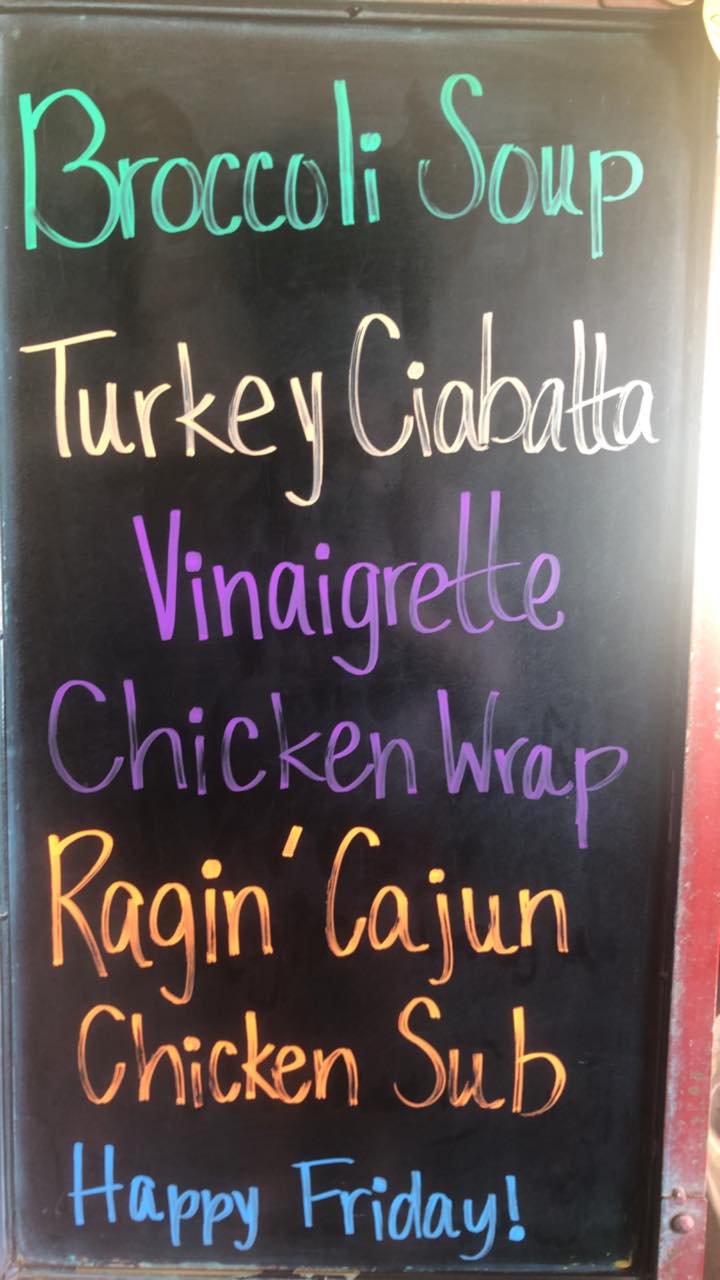 Broccoli Soup
Turkey Ciabatta
Vinaigrette
Chicken Wrap
Ragin' Cajun
Chicken Sub
Happy Friday!